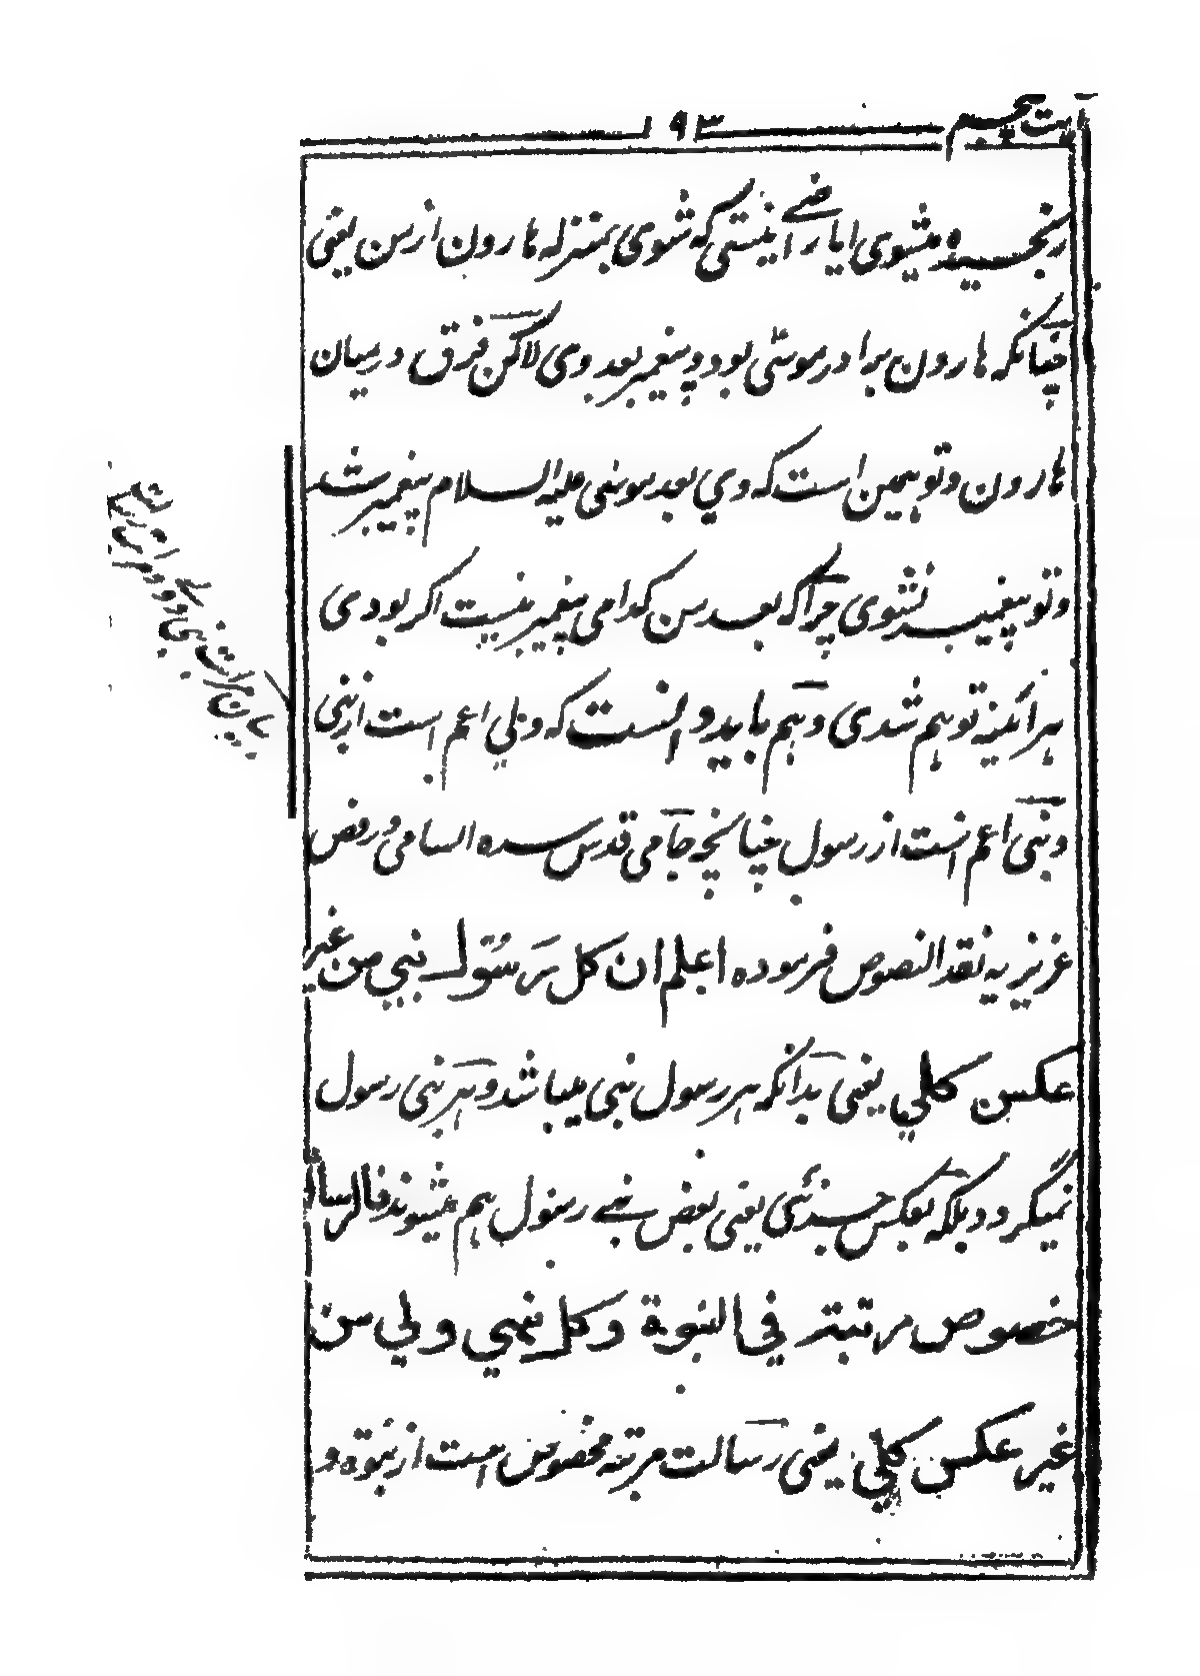 آیت پنجم
١٩٣
رنجیده میشوی ایا راضے نیستی که شوی بمنزله هارون از من یعنی
چنانکه هارون برادر موسی بود و پیغمبر بعد وی لاکن فرق درمیان
هارون و تو همین است که وی بعد موسی علیه السلام پیغمبر شد
و تو پیغمبر نشوی چرا که بعد من کدامی پیغمبر نیست اکر بودی
هر آئینه تو هم شدی و هم باید دانست که ولی اعم است از نبی
و نبی اعم است از رسول چنانچه جامی قدس سره السامی در نص
عزیزیه نقد النصوص فرموده اعلم ان کل رسول نبی من غیر
عکس کلی یعنی بدانکه هر رسول نبی میباشد و هر نبی رسول
نمیگردد بلکه بعکس جزئی یعنی بعض نبے رسول هم میشوند فالرسالة
خصوص مرتبة فی النبوة و کل نبی ولی من
غیر عکس کلی یعنی رسالت مرتبه مخصوص است از نبوة و
بیان مراتب